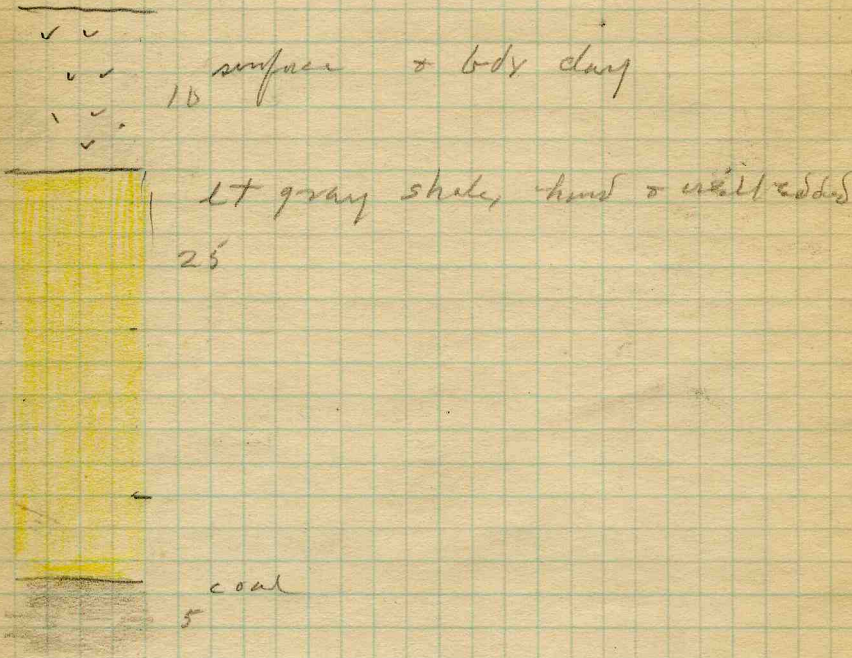 surface & bdy clay
10
lt gray shale, hard & well bedded
25
coal
5